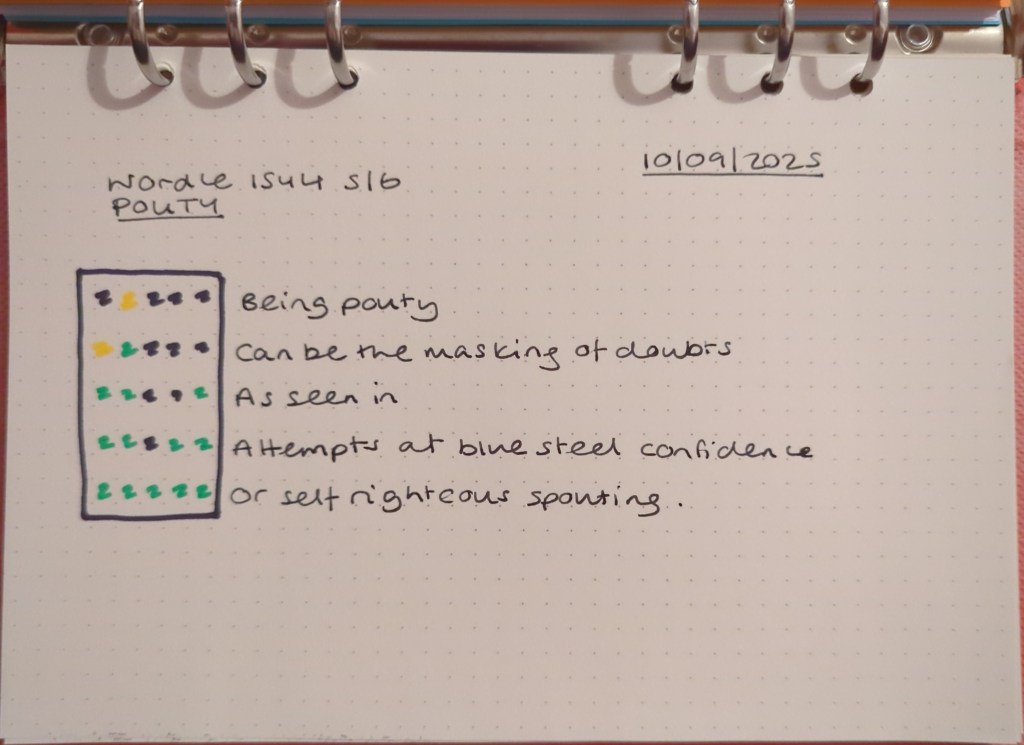 10/09/2025
Wordle 1544 5/6
POUTY
Being pouty
Can be the masking of doubts
As seen in
Attempts at blue steel confidence
Or self righteous spouting.